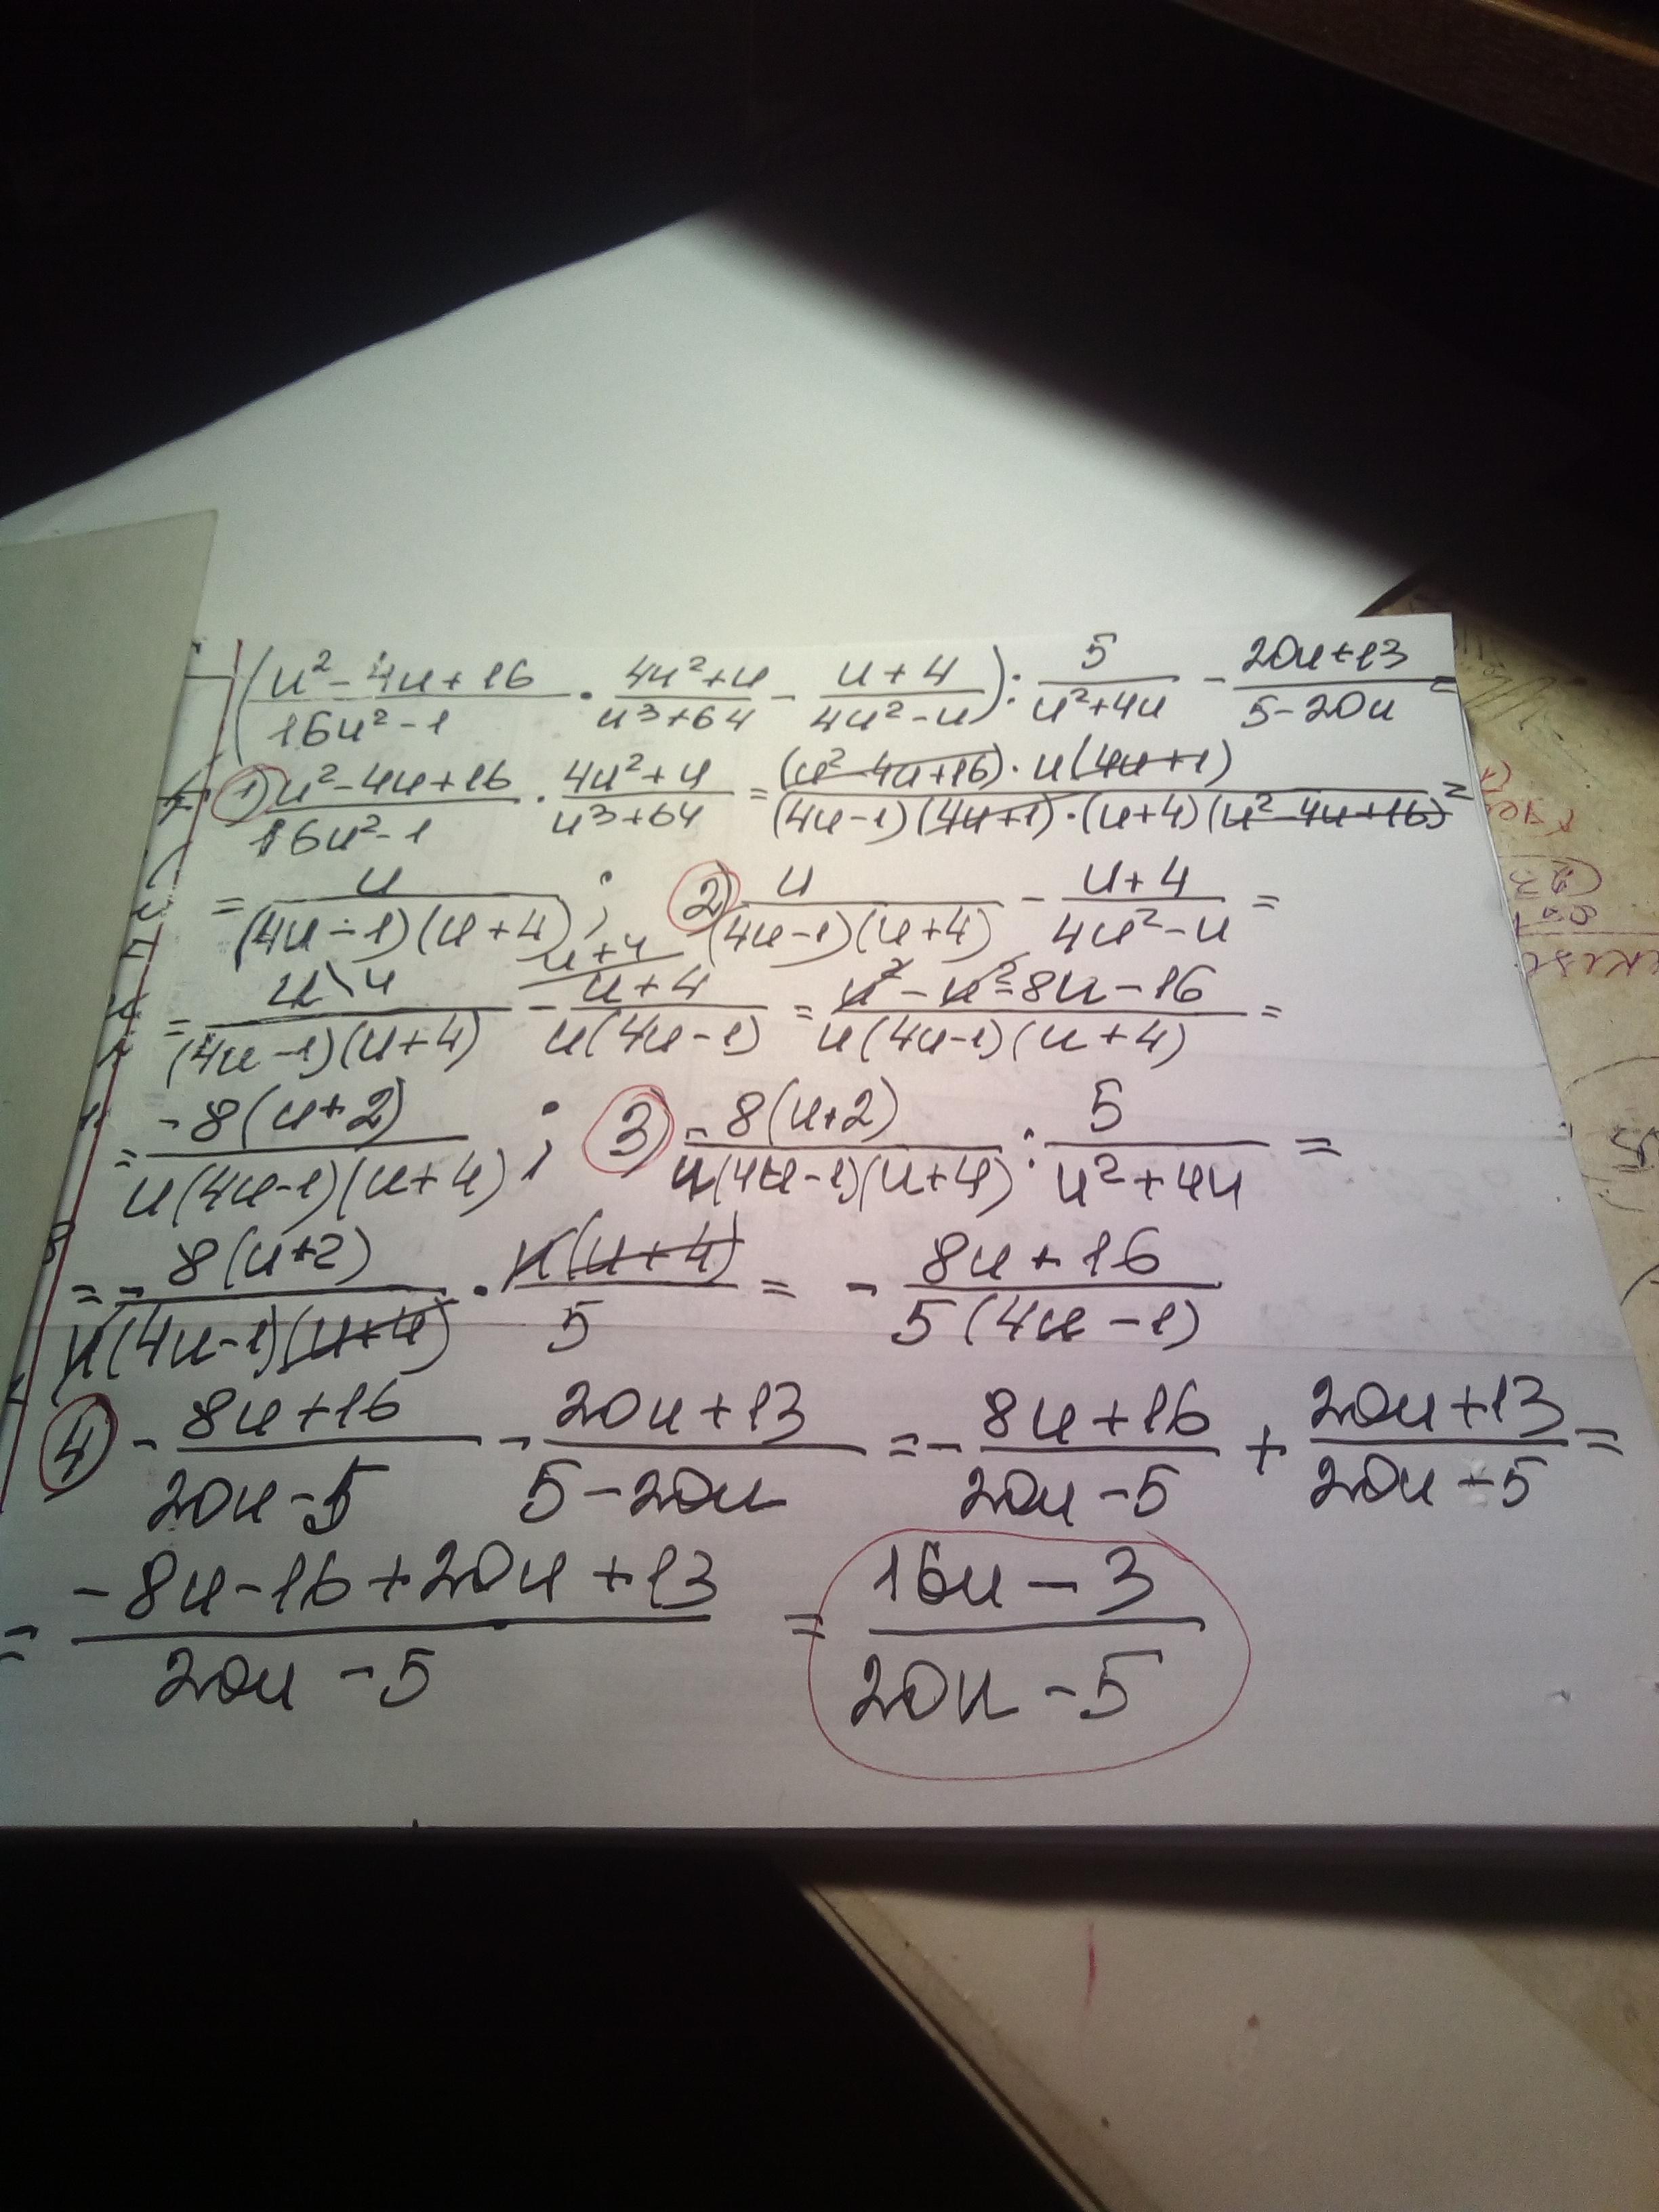 (u² - 4u + 16 / 16u² - 1 · 4u² + u / u³ + 64 - u + 4 / 4u² - u) : 5 / u² + 4u - 20u + 13 / 5 - 20u =
1) u² - 4u + 16 / 16u² - 1 · 4u² + u / u³ + 64 = (u² - 4u + 16) · u(4u + 1) / (4u - 1)(4u + 1) · (u + 4)(u² - 4u + 16) =
= u / (4u - 1)(u + 4) ; 2) u / (4u - 1)(u + 4) - u + 4 / 4u² - u =
= u \ u / (4u - 1)(u + 4) - u + 4 / u + 4 / u(4u - 1) = u² - u² - 8u - 16 / u(4u - 1)(u + 4) =
= -8(u + 2) / u(4u - 1)(u + 4) ; 3) -8(u + 2) / u(4u - 1)(u + 4) : 5 / u² + 4u =
= - 8(u + 2) / u(4u - 1)(u + 4) · u(u + 4) / 5 = - 8u + 16 / 5(4u - 1)
4) - 8u + 16 / 20u - 5 - 20u + 13 / 5 - 20u = - 8u + 16 / 20u - 5 + 20u + 13 / 20u - 5 =
= -8u - 16 + 20u + 13 / 20u - 5 = 16u - 3 / 20u - 5